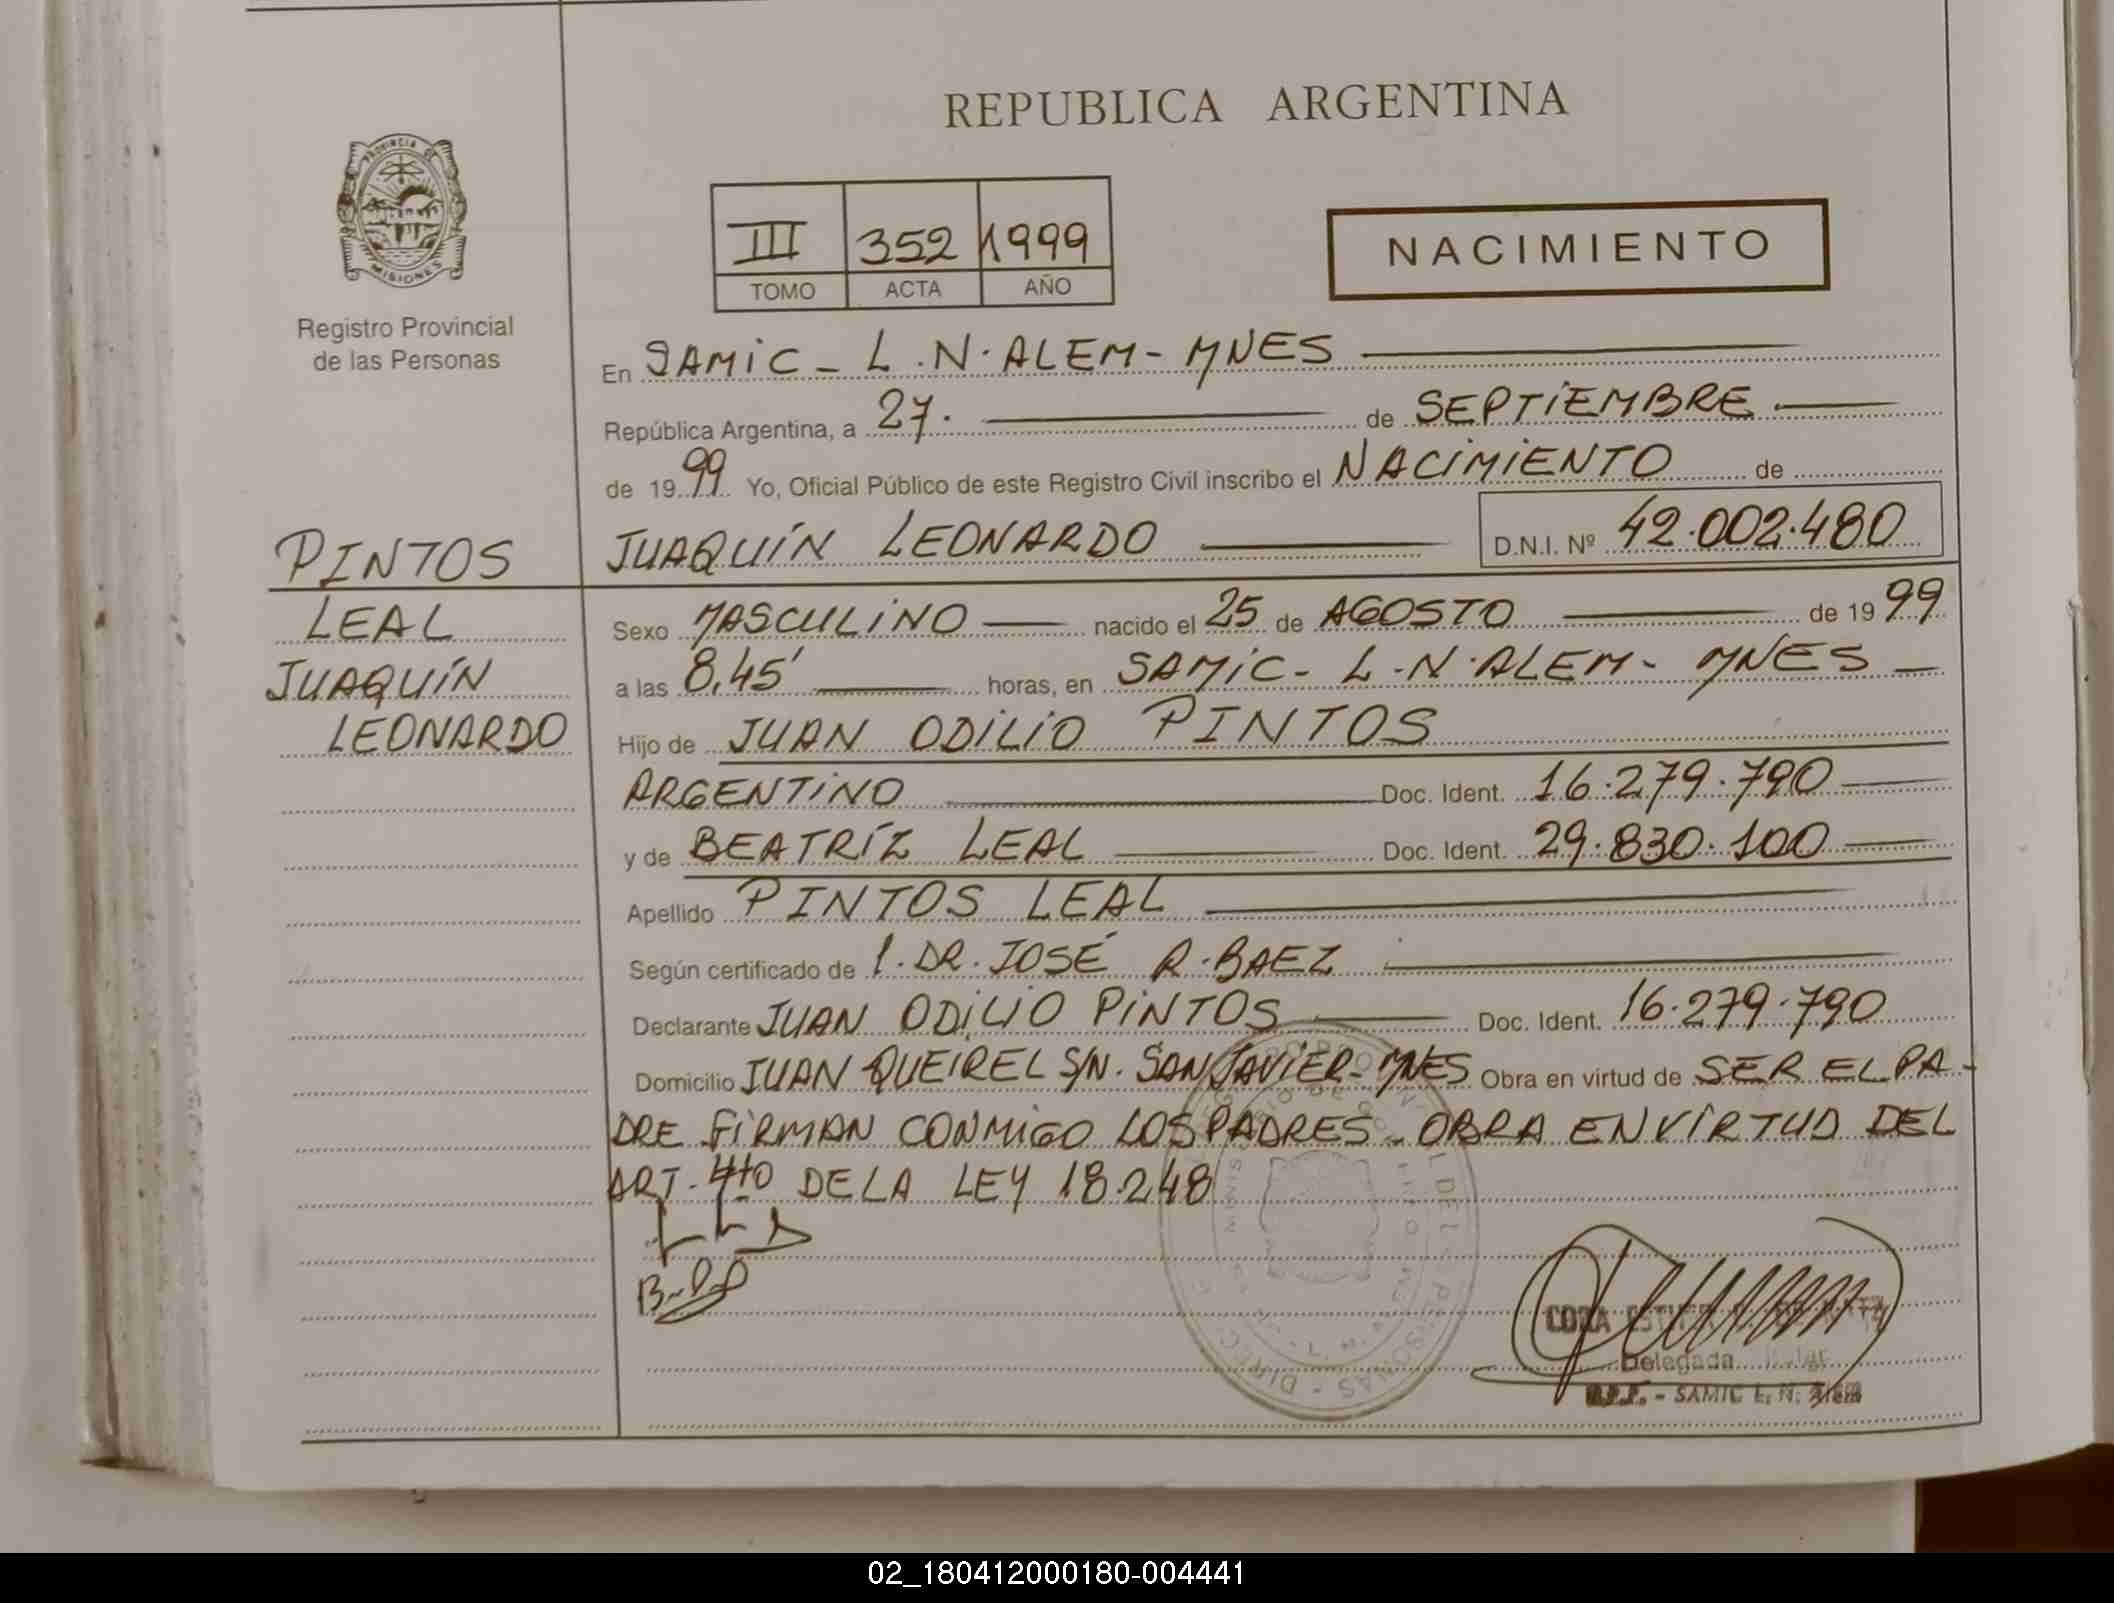 REPUBLICA ARGENTINA
PROVINCIA DE
MISIONES
Registro Provincial
de las Personas
III 352 1999
TOMO ACTA AÑO
NACIMIENTO
En SAMIC - L.N. ALEM - MNES
República Argentina, a 27. de SEPTIEMBRE
de 1999 Yo, Oficial Público de este Registro Civil inscribo el NACIMIENTO de
JUAQUÍN LEONARDO D.N.I. Nº 42.002.480
PINTOS
LEAL
JUAQUÍN
LEONARDO
Sexo MASCULINO nacido el 25 de AGOSTO de 1999
a las 8,45' horas, en SAMIC - L.N. ALEM - MNES
Hijo de JUAN ODILIO PINTOS
ARGENTINO Doc. Ident. 16.279.790
y de BEATRÍZ LEAL Doc. Ident. 29.830.100
Apellido PINTOS LEAL
Según certificado de 1. DR. JOSÉ R. BAEZ
Declarante JUAN ODILIO PINTOS Doc. Ident. 16.279.790
Domicilio JUAN QUEIREL S/N. SAN JAVIER - MNES Obra en virtud de SER EL PA-
DRE FIRMAN CONMIGO LOS PADRES - OBRA EN VIRTUD DEL
ART. 4to DE LA LEY 18.248
Delegada
SAMIC L. N. Alem
02_180412000180-004441